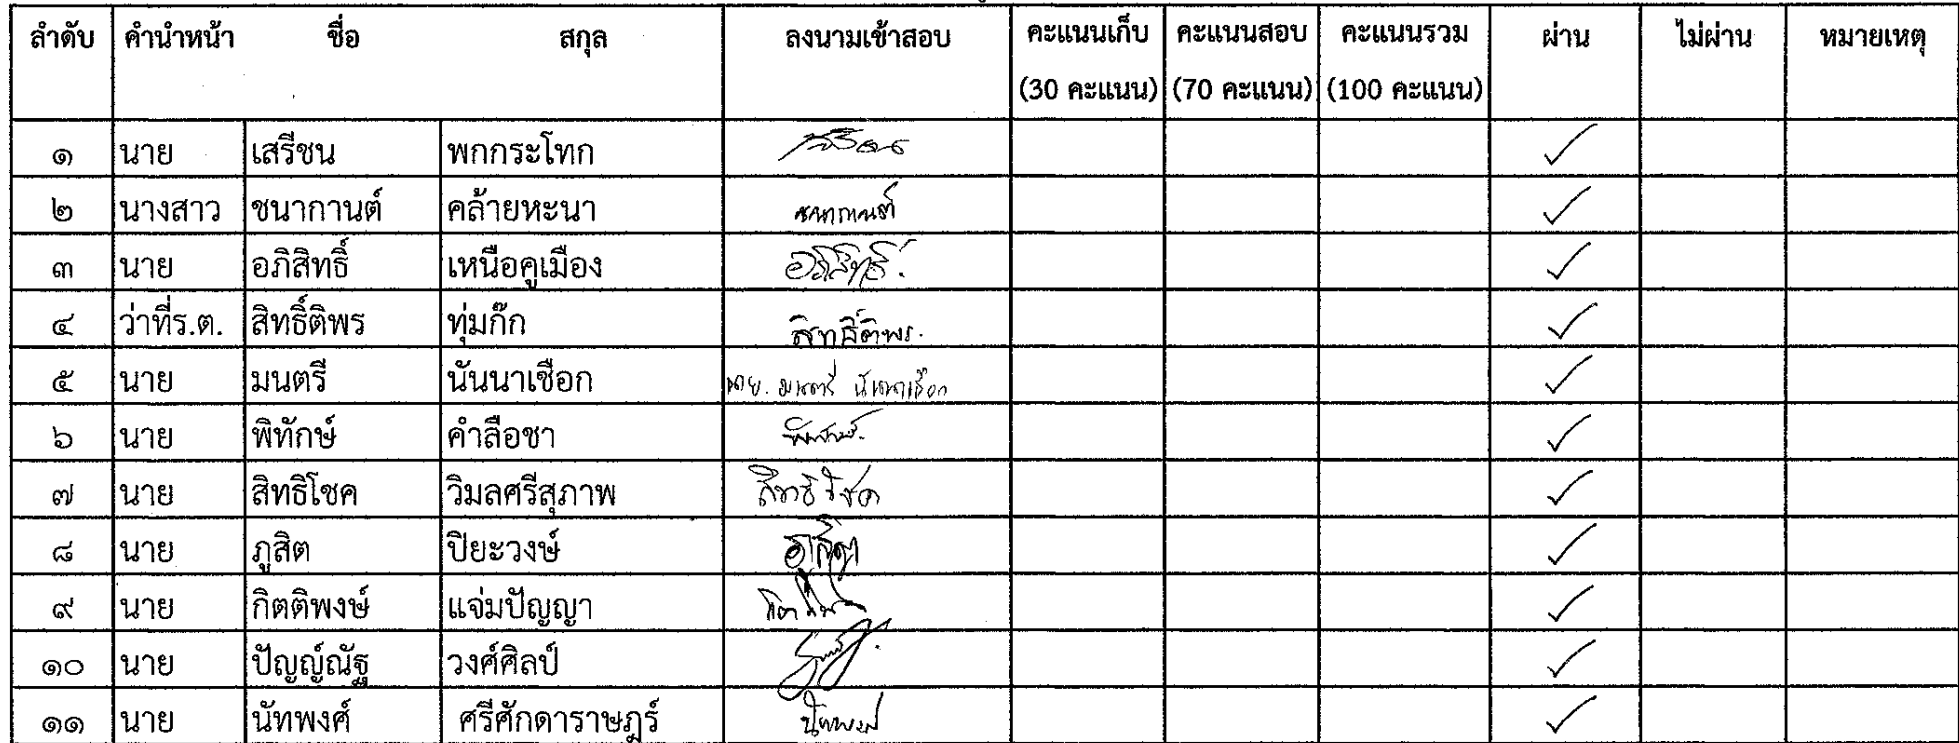 ลำดับ คำนำหน้า ชื่อ สกุล ลงนามเข้าสอบ คะแนนเก็บ คะแนนสอบ คะแนนรวม ผ่าน ไม่ผ่าน หมายเหตุ
(30 คะแนน) (70 คะแนน) (100 คะแนน)
๑ นาย เสรีชน พกกระโทก ✓
๒ นางสาว ชนากานต์ คล้ายหะนา ชนากานต์ ✓
๓ นาย อภิสิทธิ์ เหนือคูเมือง อภิสิทธิ์ ✓
๔ ว่าที่ร.ต. สิทธิ์ติพร ทุ่มก๊ก สิทธิ์ติพร ✓
๕ นาย มนตรี นันนาเชือก นาย. มนตรี นันนาเชือก ✓
๖ นาย พิทักษ์ คำลือชา พิทักษ์ ✓
๗ นาย สิทธิโชค วิมลศรีสุภาพ สิทธิโชค ✓
๘ นาย ภูสิต ปิยะวงษ์ ✓
๙ นาย กิตติพงษ์ แจ่มปัญญา ✓
๑๐ นาย ปัญญ์ณัฐ วงศ์ศิลป์ ✓
๑๑ นาย นัทพงศ์ ศรีศักดาราษฎร์ นัทพงศ์ ✓